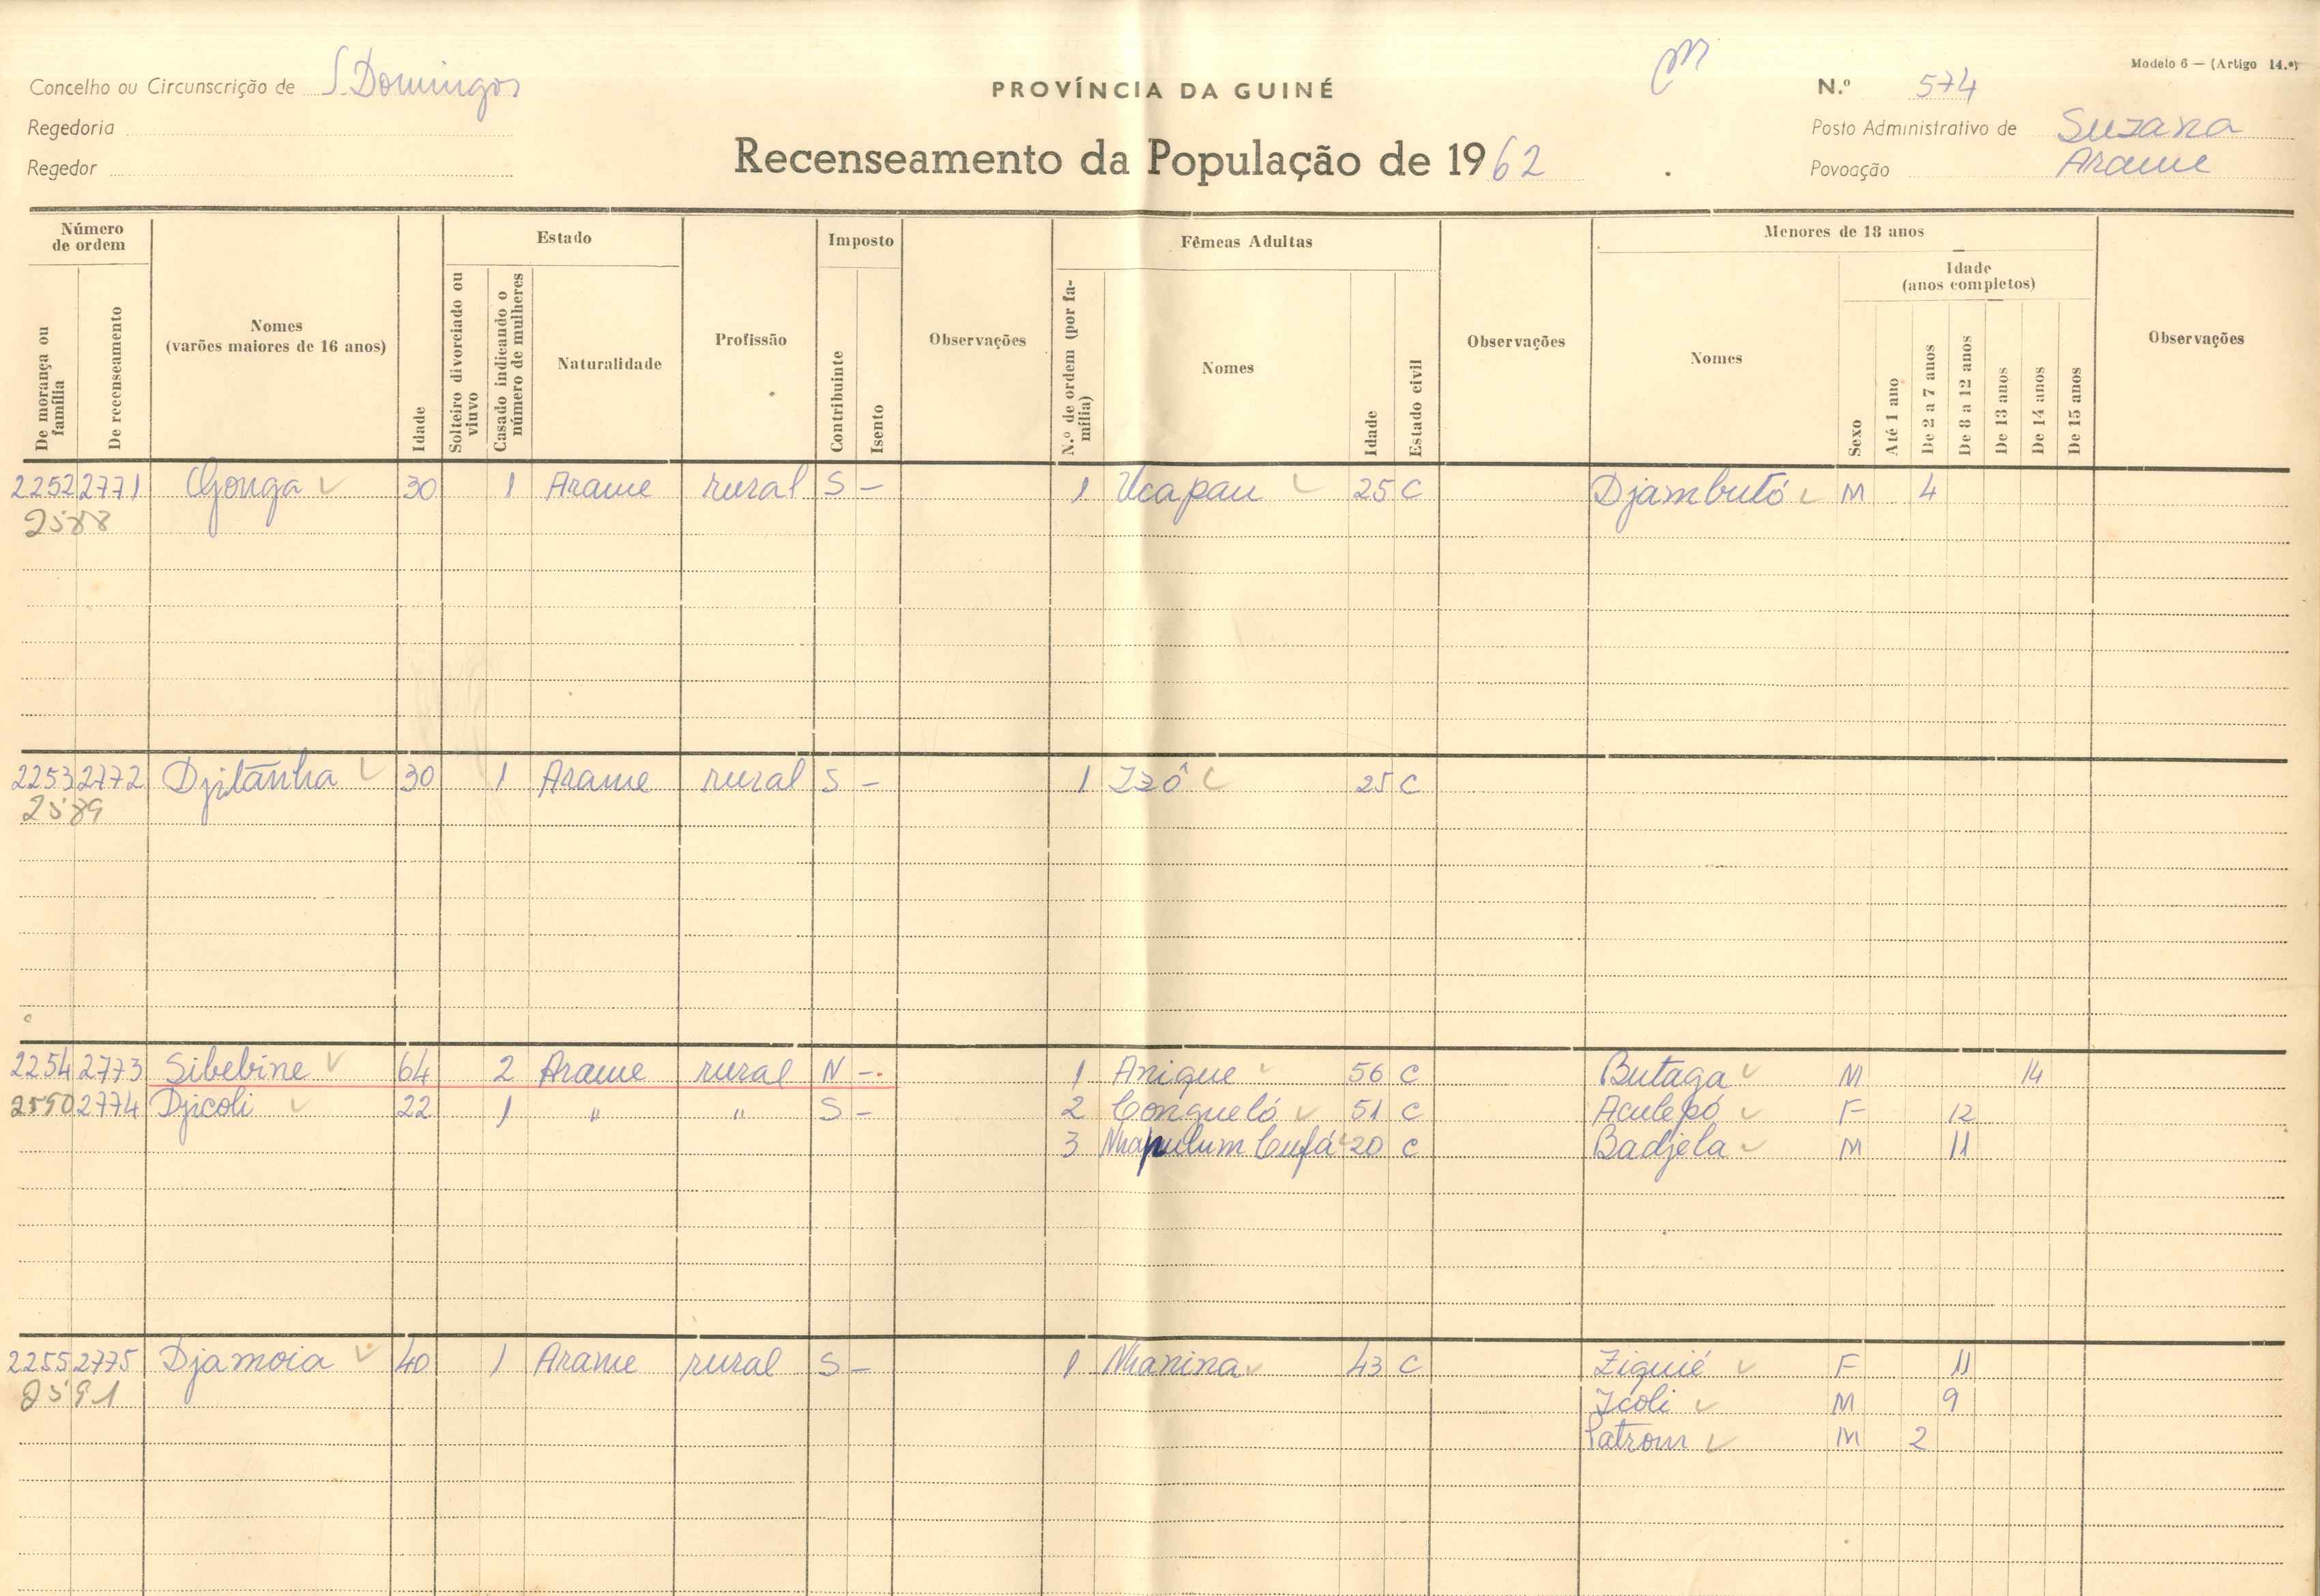 Modelo 6 — (Artigo 14.º)
Concelho ou Circunscrição de S. Domingos
PROVÍNCIA DA GUINÉ
N.º 574
Regedoria
Posto Administrativo de Suzana
Regedor
Recenseamento da População de 1962
Povoação Arame
Número de ordem
De morança ou família
De recenseamento
Nomes (varões maiores de 16 anos)
Idade
Estado
Solteiro divorciado ou viuvo
Casado indicando o número de mulheres
Naturalidade
Profissão
Imposto
Contribuinte
Isento
Observações
Fêmeas Adultas
N.º de ordem (por família)
Nomes
Idade
Estado civil
Observações
Menores de 18 anos
Nomes
Sexo
Idade (anos completos)
Até 1 ano
De 2 a 7 anos
De 8 a 12 anos
De 13 anos
De 14 anos
De 15 anos
Observações
2252 2771 Gonga 30 1 Arame rural S – 1 Ucapau 25 C Djambutó M 4
2588
2253 2772 Djitanha 30 1 Arame rural S – 1 Izô 25 C
2589
2254 2773 Sibebine 64 2 Arame rural N – 1 Anique 56 C Butaga M 14
2590 2774 Djicoli 22 1 " " S – 2 Conqueló 51 C Aculepó F 12
3 Nhapulum Cufá 20 C Badjela M 11
2255 2775 Djamoia 40 1 Arame rural S – 1 Nhanina 43 C Ziquié F 11
2591 Icoli M 9
Patrom M 2